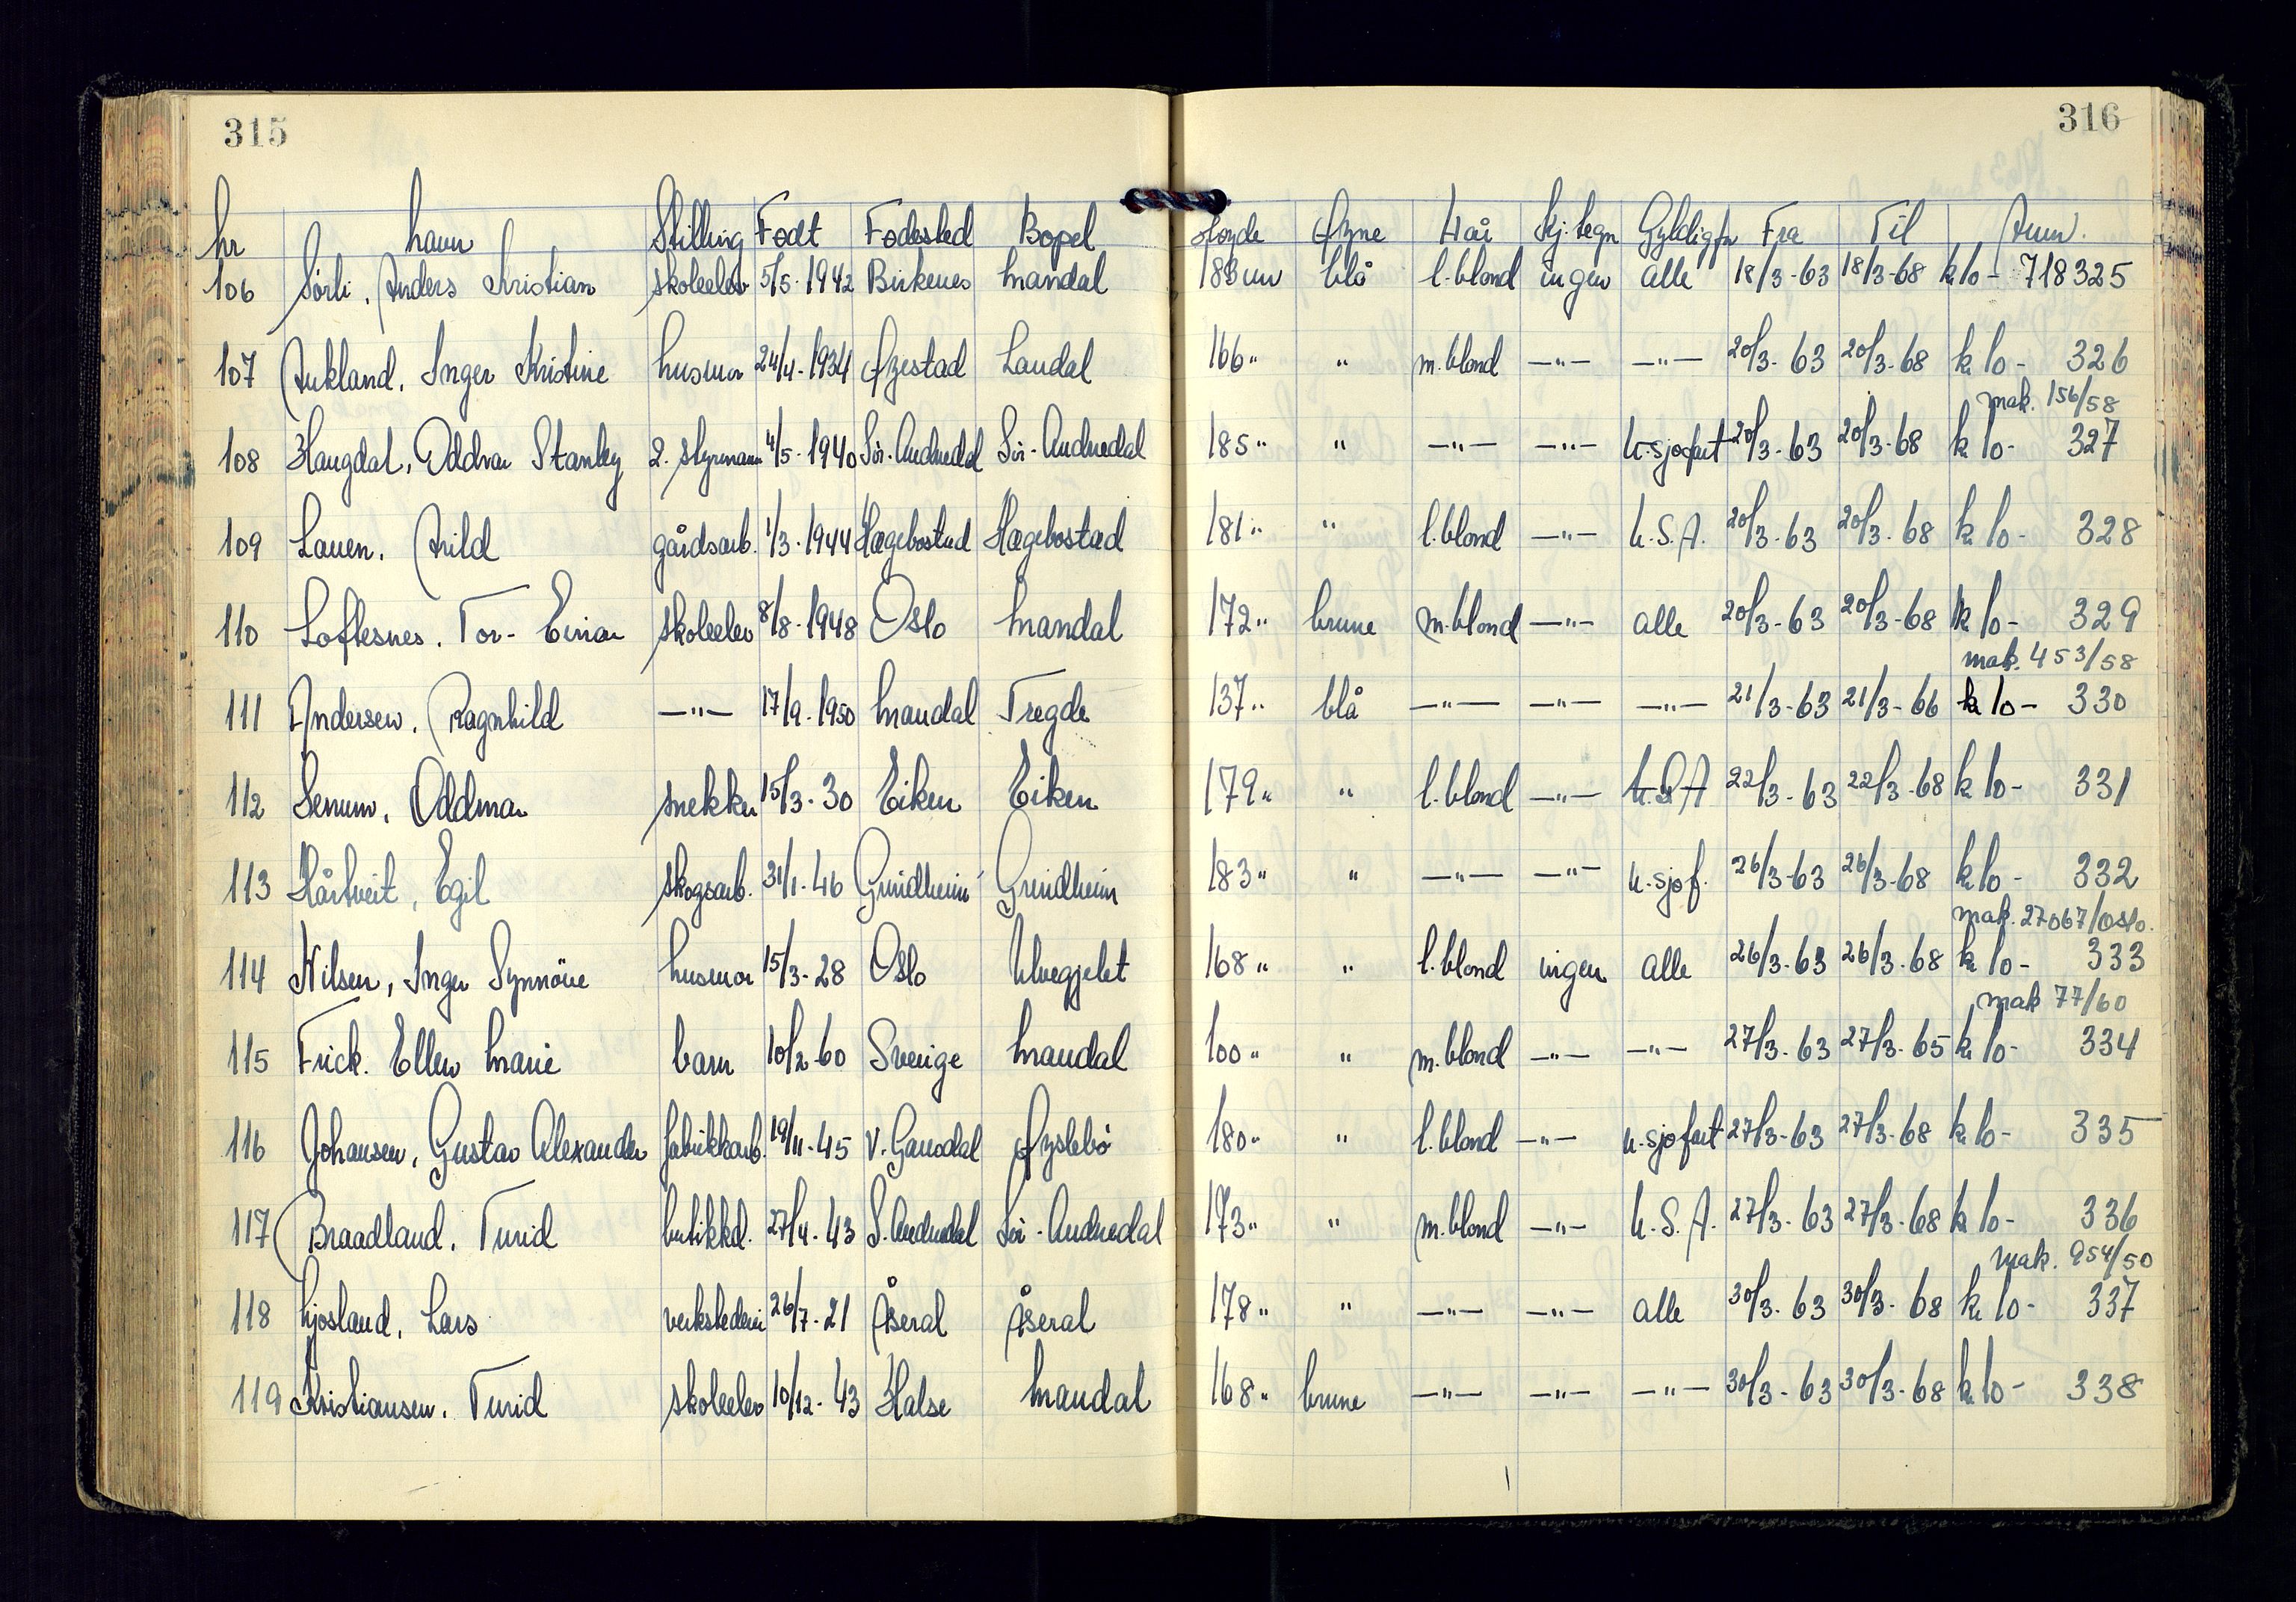 315
316
Nr Navn Stilling Født Fødested Bopel Høyde Øyne Hår Kj.tegn Gyldigf. Fra Til Anm.
106 Sørli, Anders Kristian skoleelev 5/5-1942 Birkenes Mandal 183 cm blå l.blond ingen alle 18/3-63 18/3-68 kr 10- 718325
107 Aukland, Inger Kristine husmor 24/4-1934 Øyestad Laudal 166 " " m.blond -"- -"- 20/3-63 20/3-68 kr 10- 326
mak. 156/58
108 Haugdal, Oddvar Stanley 2. styrmann 4/5-1940 Sør-Audnedal Sør-Audnedal 185 " " -"- -"- u.sjøfart 20/3-63 20/3-68 kr 10- 327
109 Lauen, Arild gårdsarb. 1/3-1944 Hægebostad Hægebostad 181 " " l.blond -"- U.S.A. 20/3-63 20/3-68 kr 10- 328
110 Loftesnes, Tor-Einar skoleelev 8/8-1948 Oslo Mandal 172 " brune m.blond -"- alle 20/3-63 20/3-68 kr 10- 329
mak. 453/58
111 Andersen, Ragnhild -"- 17/9-1950 Mandal Tregde 137 " blå -"- -"- -"- 21/3-63 21/3-66 kr 10- 330
112 Senum, Oddmar snekker 15/3-30 Eiken Eiken 179 " " l.blond -"- U.S.A 22/3-63 22/3-68 kr 10- 331
113 Hårtveit, Egil skogsarb. 31/1-46 Grindheim Grindheim 183 " " -"- -"- u.sjøf. 26/3-63 26/3-68 kr 10- 332
mak. 27067/Oslo.
114 Nilsen, Inger Synnöve husmor 15/3-28 Oslo Uluegjelet 168 " " l.blond ingen alle 26/3-63 26/3-68 kr 10- 333
mak 77/60
115 Frick. Ellen Marie barn 10/2-60 Sverige Mandal 100 " " m.blond -"- -"- 27/3-63 27/3-65 kr 10- 334
116 Johansen, Gustav Alexander fabrikkarb. 19/11-45 V. Gausdal Øyslebø 180 " " l.blond -"- u.sjøfart 27/3-63 27/3-68 kr 10- 335
117 Braadland, Turid butikkd. 27/4-43 S.Audnedal Sør-Audnedal 173 " " m.blond -"- U.S.A. 27/3-63 27/3-68 kr 10- 336
mak. 954/50
118 Kjosland, Lars verkstedeier 26/7-21 Åseral Åseral 178 " " -"- -"- alle 30/3-63 30/3-68 kr 10- 337
119 Kristiansen, Turid skoleelev 10/12-43 Halse Mandal 168 " brune -"- -"- -"- 30/3-63 30/3-68 kr 10- 338